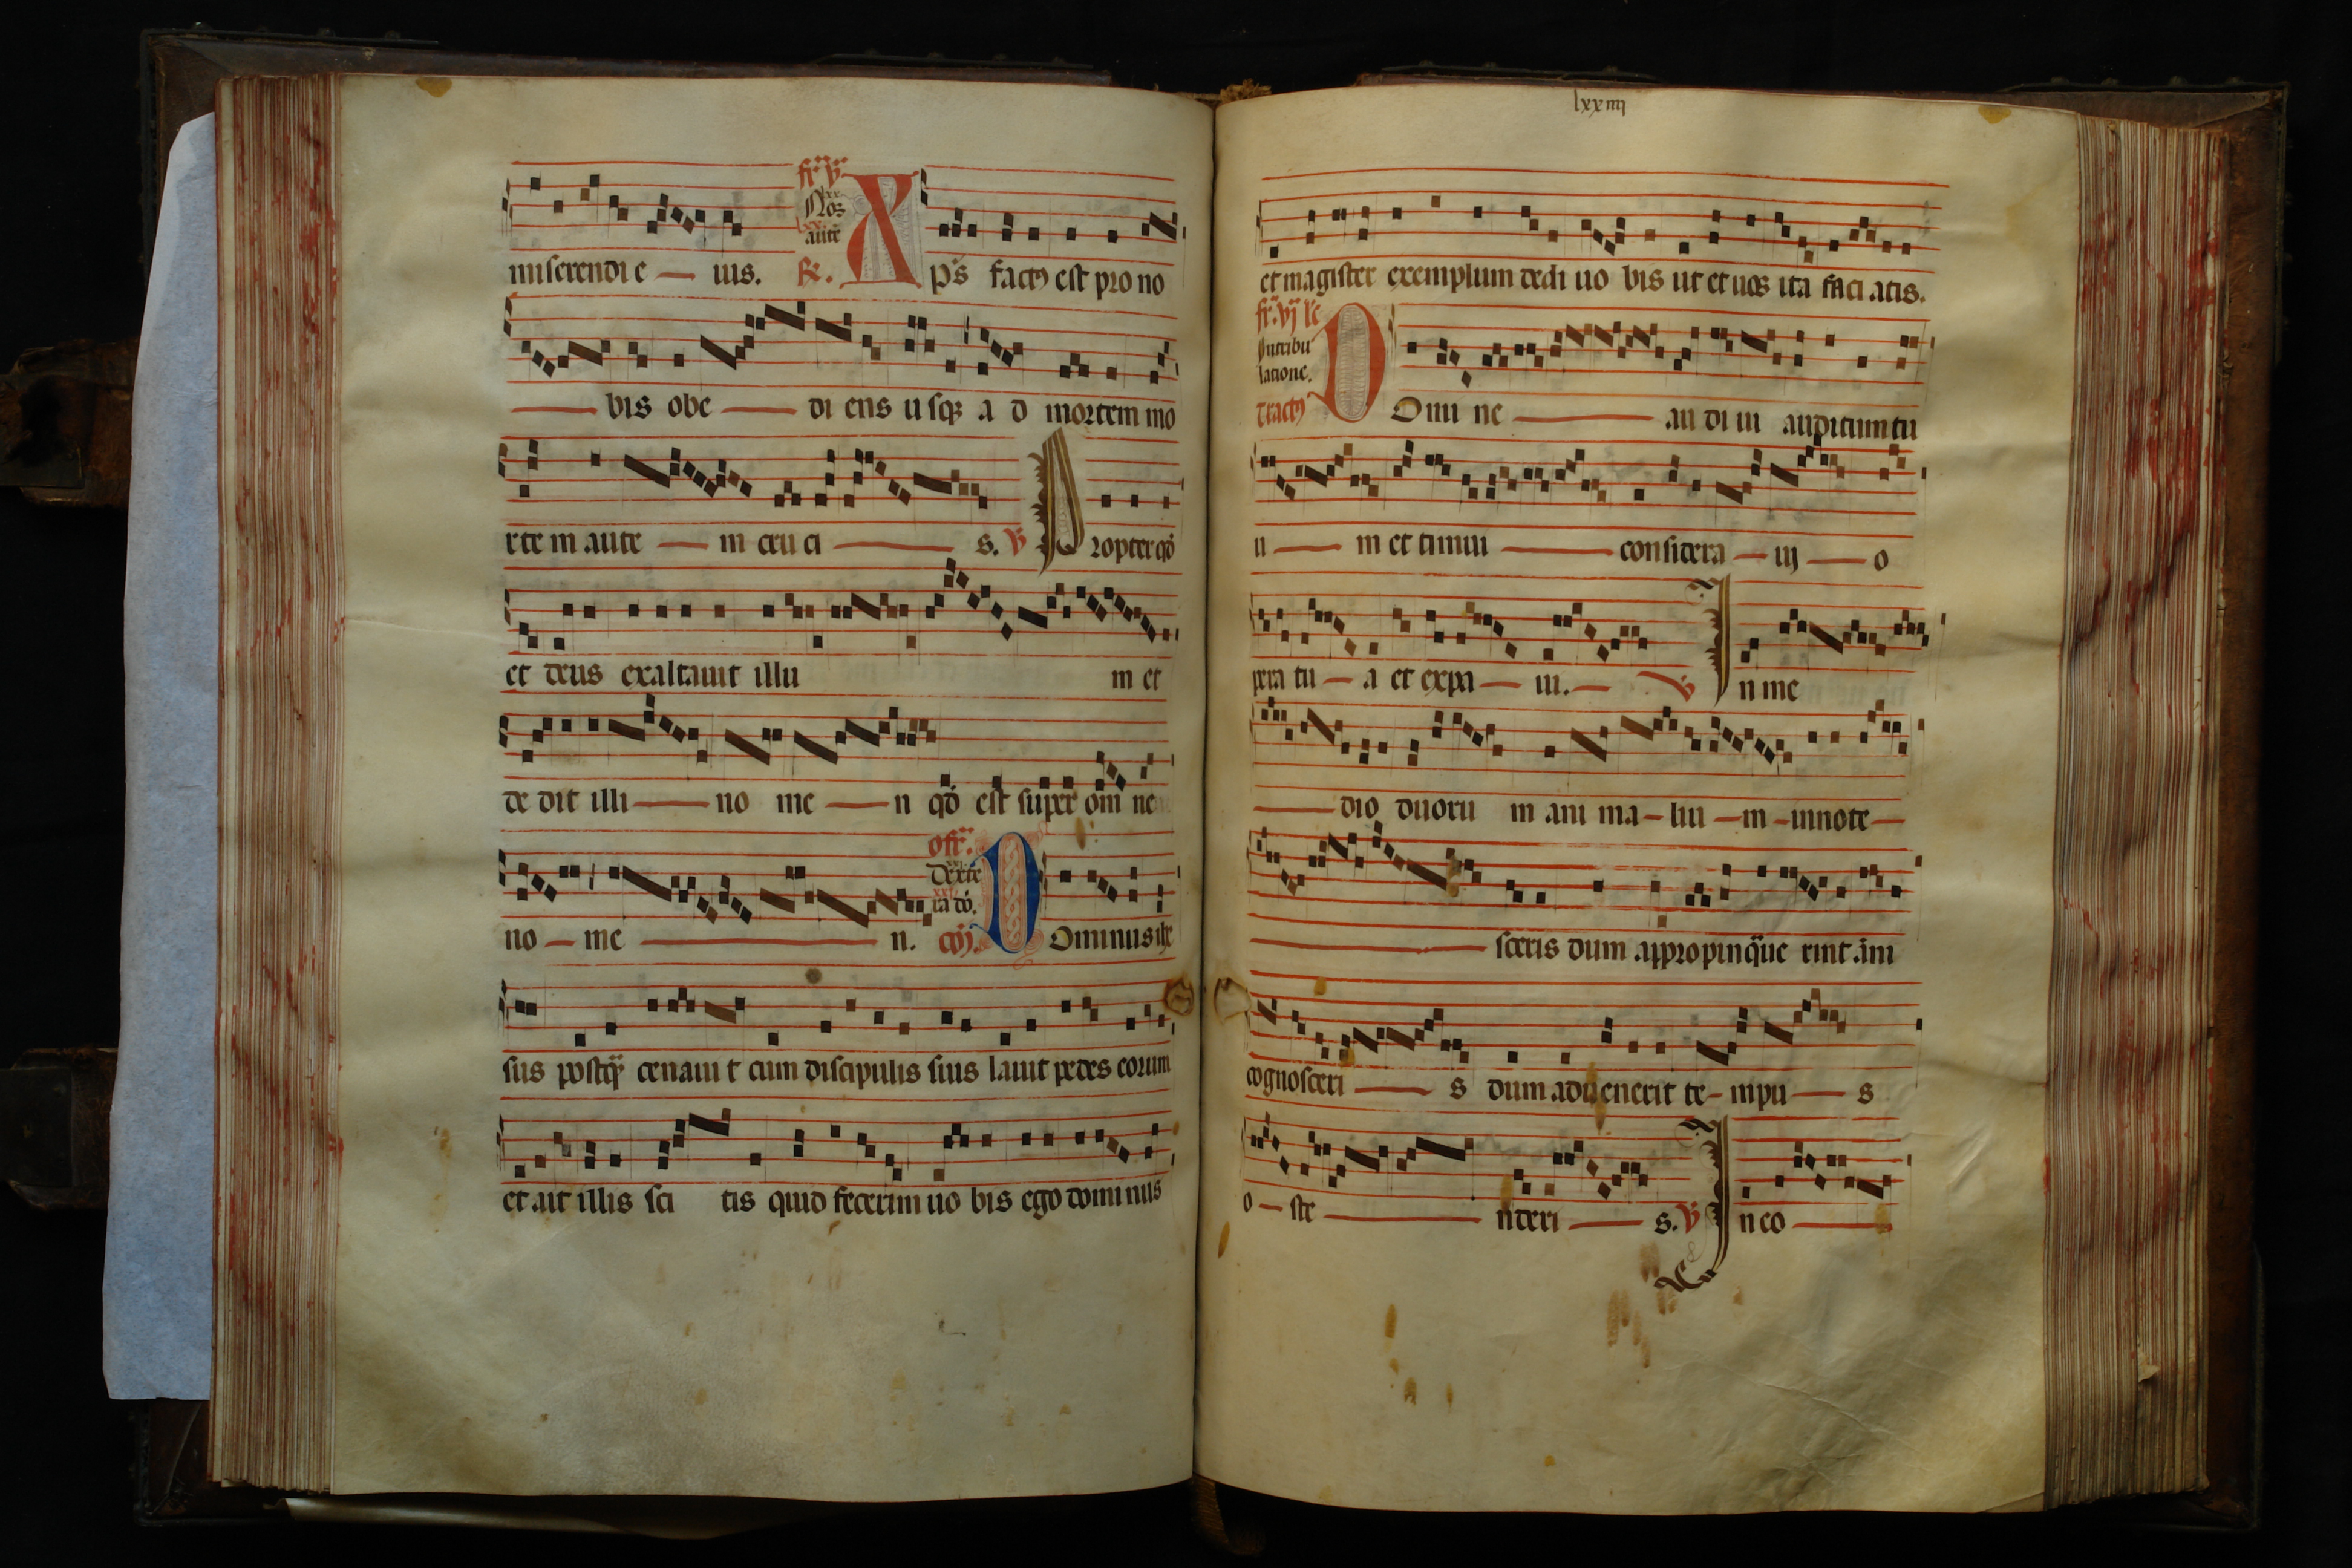 fr̃ v̄
Nos
autē
miserendi e ius. R̃. Xp̄s factꝰ est pro no
bis obe di ens usqꝫ a d mortem mo
rte m aute m cru ci s. V̄ Propter qđ
et deus exaltauit illu m et
de dit illi no me n qđ est super om ne
ofr̃.
Dexte
ra dō.
no me n. cōỹ. Dominus ihe
sus postq̄ cenaui t cum discipulis suis lauit pedes eorum
et ait illis sci tis quid fecerim uo bis ego dominus
lxxiiij
et magister exemplum dedi uo bis ut et uos ita faci atis.
fr̃. vj
In tribu
latione.
tractꝰ Domi ne au di ui auditum tu
u m et timui considera ui o
pera tu a et expa ui. V̄ In me
dio duoru m ani ma liu m innote
sceris dum appropinq̄ue rint ãni
cognosceri s dum aduenerit te mpu s
o ste nderi s. V̄ In eo